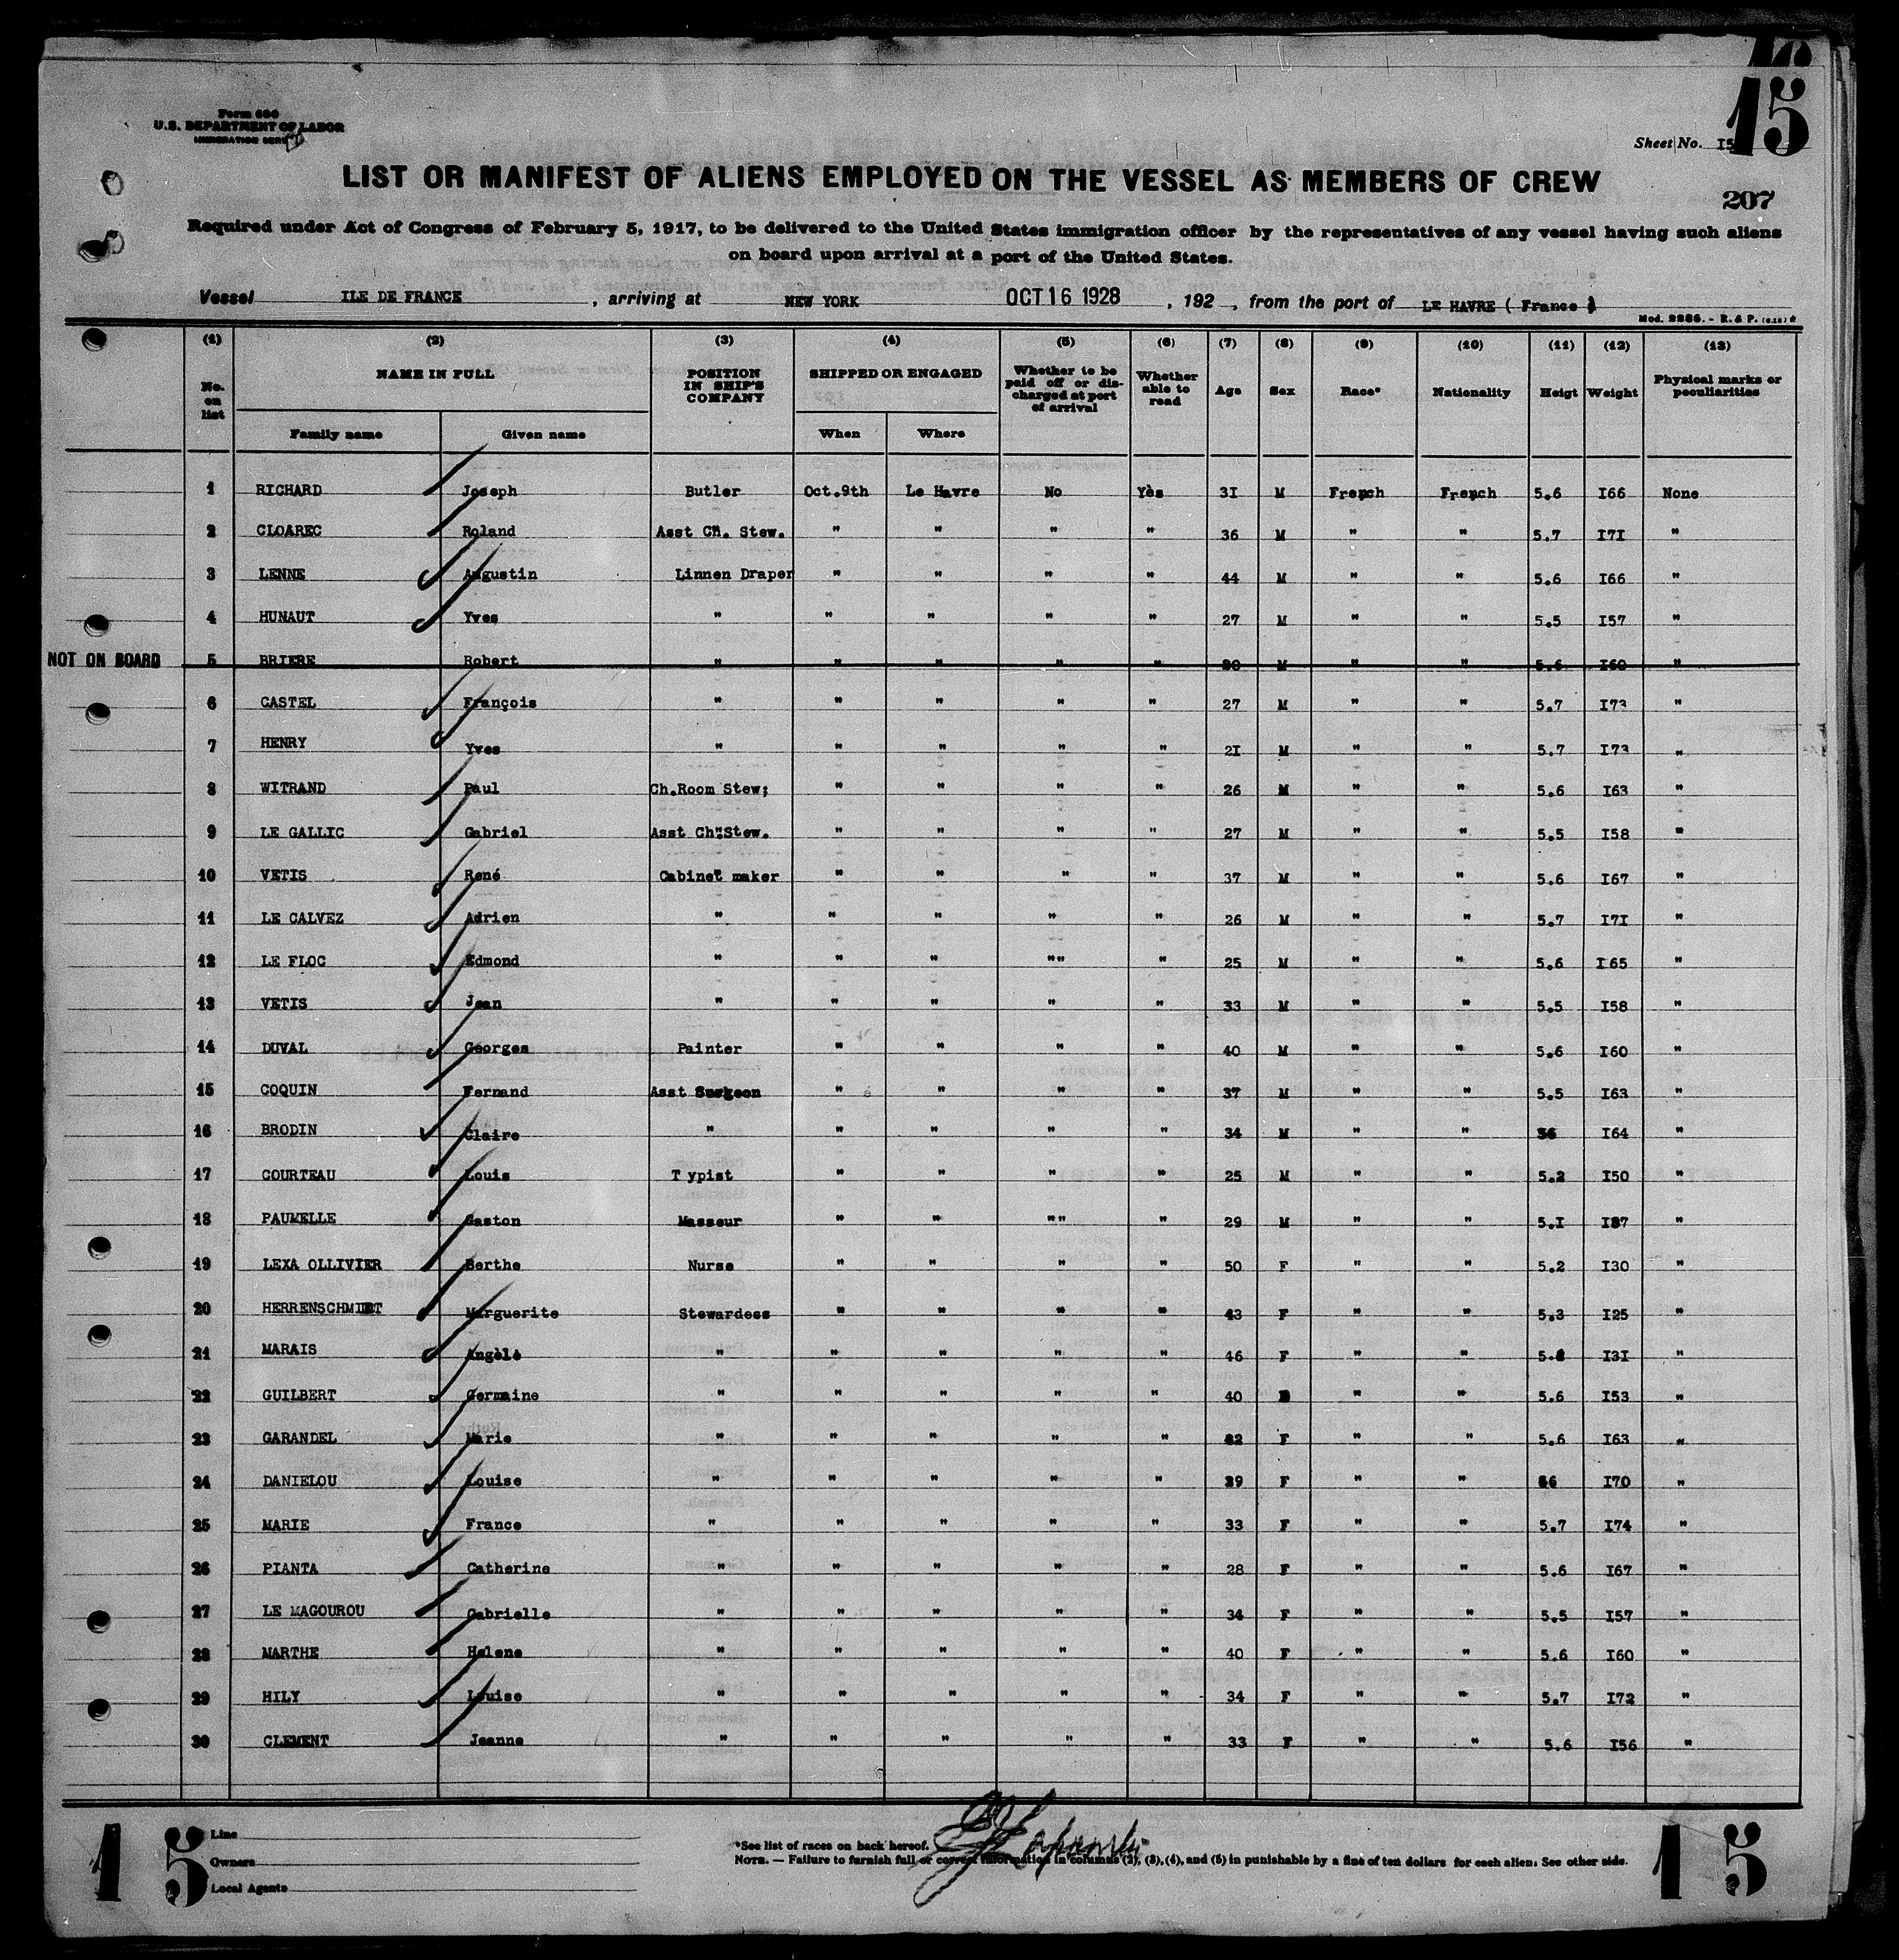 15
Form 680
U.S. DEPARTMENT OF LABOR
IMMIGRATION
Sheet No. I5
LIST OR MANIFEST OF ALIENS EMPLOYED ON THE VESSEL AS MEMBERS OF CREW
207
Required under Act of Congress of February 5, 1917, to be delivered to the United States immigration officer by the representatives of any vessel having such aliens
on board upon arrival at a port of the United States.
Vessel ILE DE FRANCE , arriving at NEW YORK OCT 16 1928 , 192 , from the port of LE HAVRE ( France )
Mod. 2286. - R. & P.
(1) (2) (3) (4) (5) (6) (7) (8) (9) (10) (11) (12) (13)
No. on list NAME IN FULL POSITION IN SHIP'S COMPANY SHIPPED OR ENGAGED Whether to be paid off or discharged at port of arrival Whether able to read Age Sex Race* Nationality Heigt Weight Physical marks or peculiarities
Family name Given name When Where
1 RICHARD Joseph Butler Oct.9th Le Havre No Yès 3I M French French 5.6 I66 None
2 CLOAREC Roland Asst Ch. Stew. " " " " 36 M " " 5.7 I7I "
3 LENNE Augustin Linnen Draper " " " " 44 M " " 5.6 I66 "
4 HUNAUT Yves " " " " " 27 M " " 5.5 I57 "
NOT ON BOARD 5 BRIERE Robert " " " " " M " " 5.6 I60 "
6 CASTEL François " " " " " 27 M " " 5.7 I73 "
7 HENRY Yves " " " " " 2I M " " 5.7 I73 "
8 WITRAND Paul Ch.Room Stew; " " " " 26 M " " 5.6 I63 "
9 LE GALLIC Gabriel Asst Ch"Stew. " " " " 27 M " " 5.5 I58 "
10 VETIS René Cabinet maker " " " " 37 M " " 5.6 I67 "
11 LE CALVEZ Adrien " " " " " 26 M " " 5.7 I7I "
12 LE FLOC Edmond " " " "" " 25 M " " 5.6 I65 "
13 VETIS Jean " " " " " 33 M " " 5.5 I58 "
14 DUVAL Georges Painter " " " " 40 M " " 5.6 I60 "
15 COQUIN Fernand Asst Surgeon " " " " 37 M " " 5.5 I63 "
16 BRODIN Claire " " " " " 34 M " " 56 I64 "
17 COURTEAU Louis T ypist " " " " 25 M " " 5.2 I50 "
18 PAUMELLE Gaston Masseur " " "" " 29 M " " 5.I "
19 LEXA OLLIVIER Berthe Nurse " " " " 50 F " " 5.2 I30 "
20 HERRENSCHMIDT Marguerite Stewardess " " " " 43 F " " 5.3 I25 "
21 MARAIS Angèlè " " " " " 46 F " " I3I "
22 GUILBERT Germaine " " " " " 40 " " 5.6 I53 "
23 GARANDEL Marie " " " " " F " " 5.6 I63 "
24 DANIELOU Louise " " " " " 29 F " " I70 "
25 MARIE France " " " " " 33 F " " 5.7 I74 "
26 PIANTA Catherine " " " " " 28 F " " 5.6 I67 "
27 LE MAGOUROU Gabrielle " " " " " 34 F " " 5.5 I57 "
28 MARTHE Helene " " " " " 40 F " " 5.6 I60 "
29 HILY Louise " " " " " 34 F " " 5.7 I72 "
30 CLEMENT Jeanne " " " " " 33 F " " 5.6 I56 "
15
Line
Owners
Local Agents
*See list of races on back hereof.
NOTE. — Failure to furnish full or correct information in columns (2), (3), (4), and (5) in punishable by a fine of ten dollars for each alien. See other side.
15